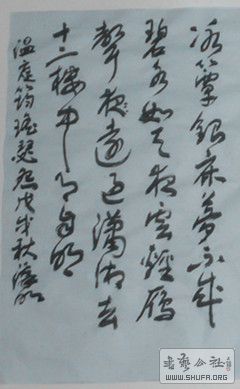 冰簟銀床夢不成
碧水如天夜雲輕雁
聲遠過瀟湘去
十二樓中月自明
温庭筠瑤瑟怨戊戌秋
書藝公社
WWW.SHUFA.ORG